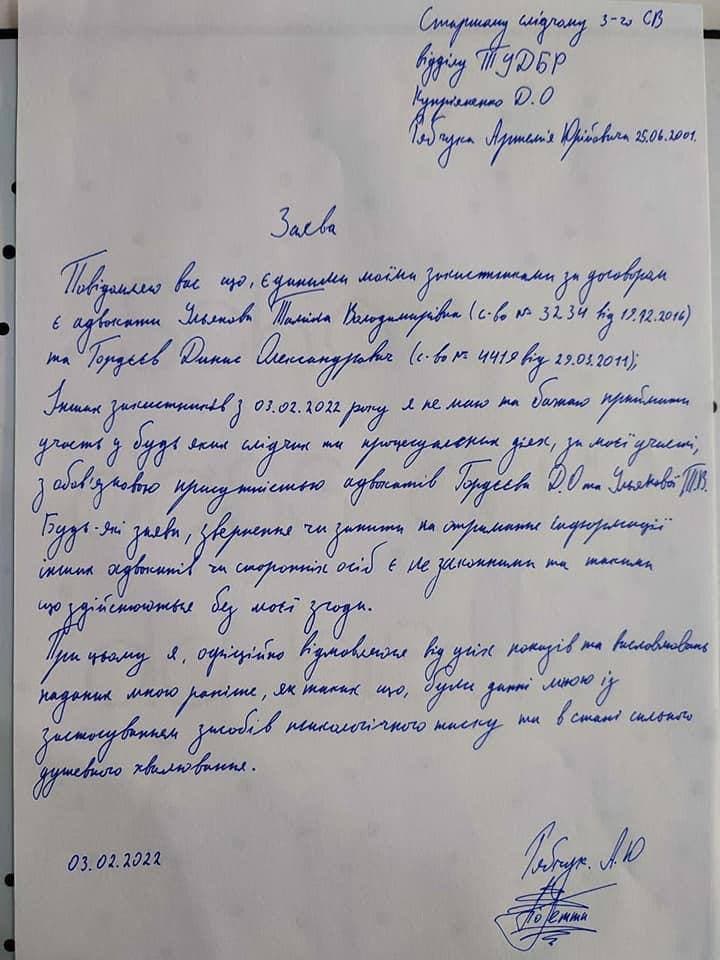 Старшому слідчому 3-го СВ
відділу ТУДБР
Купріяненко Д.О
Рябчука Артемія Юрійовича 25.06.2001.
Заява
Повідомляю вас що, єдиними моїми захистніками за договором
є адвокати Ульякова Таліна Володимирівна (с-во № 3234 від 19.12.2016)
та Гордєєв Динис Олександрович (с-во № 4419 від 29.03.2011);
Інших захистників з 03.02.2022 року я не маю та бажаю приймати
участь у будь яких слідчих та процесуальних діях, за моєї участі,
з обов'язковою присутністью адвокатів Гордєєва Д.О та Ульякової Т.В.
Будь-які заяви, звернення чи запити на отримання інформації
інших адвокатів чи сторонніх осіб є не законними та такими
що здійснюються без моєї згоди.
При цьому я, офіційно відмовляюся від усіх показів та висловлювань
наданих мною раніше, як таких що, були данні мною із
застосуванням засобів психологічного тиску та в стані сильного
душевного хвилювання.
03.02.2022
Рябчук. А.Ю